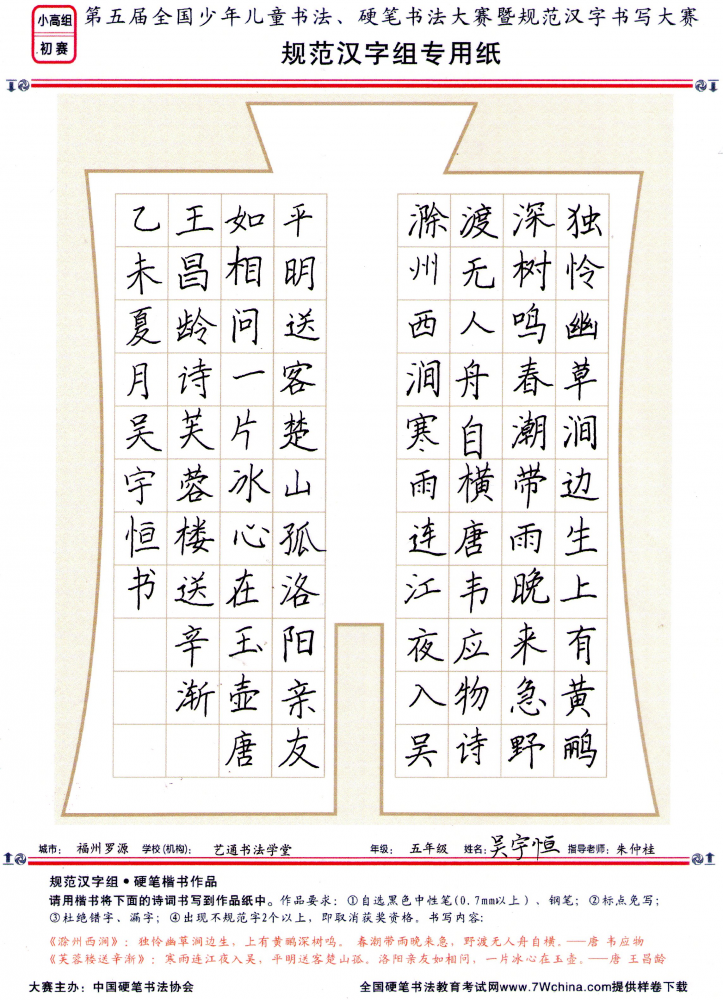 小高组
初赛
第五届全国少年儿童书法、硬笔书法大赛暨规范汉字书写大赛
规范汉字组专用纸
独怜幽草涧边生上有黄鹂
深树鸣春潮带雨晚来急野
渡无人舟自横唐韦应物诗
滁州西涧寒雨连江夜入吴
平明送客楚山孤洛阳亲友
如相问一片冰心在玉壶唐
王昌龄诗芙蓉楼送辛渐
乙未夏月吴宇恒书
城市： 福州罗源 学校(机构)： 艺通书法学堂 年级： 五年级 姓名：吴宇恒 指导老师：朱仲桂
规范汉字组•硬笔楷书作品
请用楷书将下面的诗词书写到作品纸中。作品要求：①自选黑色中性笔(0.7mm以上）、钢笔；②标点免写；
③杜绝错字、漏字；④出现不规范字2个以上，即取消获奖资格。书写内容：
《滁州西涧》：独怜幽草涧边生，上有黄鹂深树鸣。春潮带雨晚来急，野渡无人舟自横。——唐 韦应物
《芙蓉楼送辛渐》：寒雨连江夜入吴，平明送客楚山孤。洛阳亲友如相问，一片冰心在玉壶。——唐 王昌龄
大赛主办：中国硬笔书法协会
全国硬笔书法教育考试网www.7Wchina.com提供样卷下载